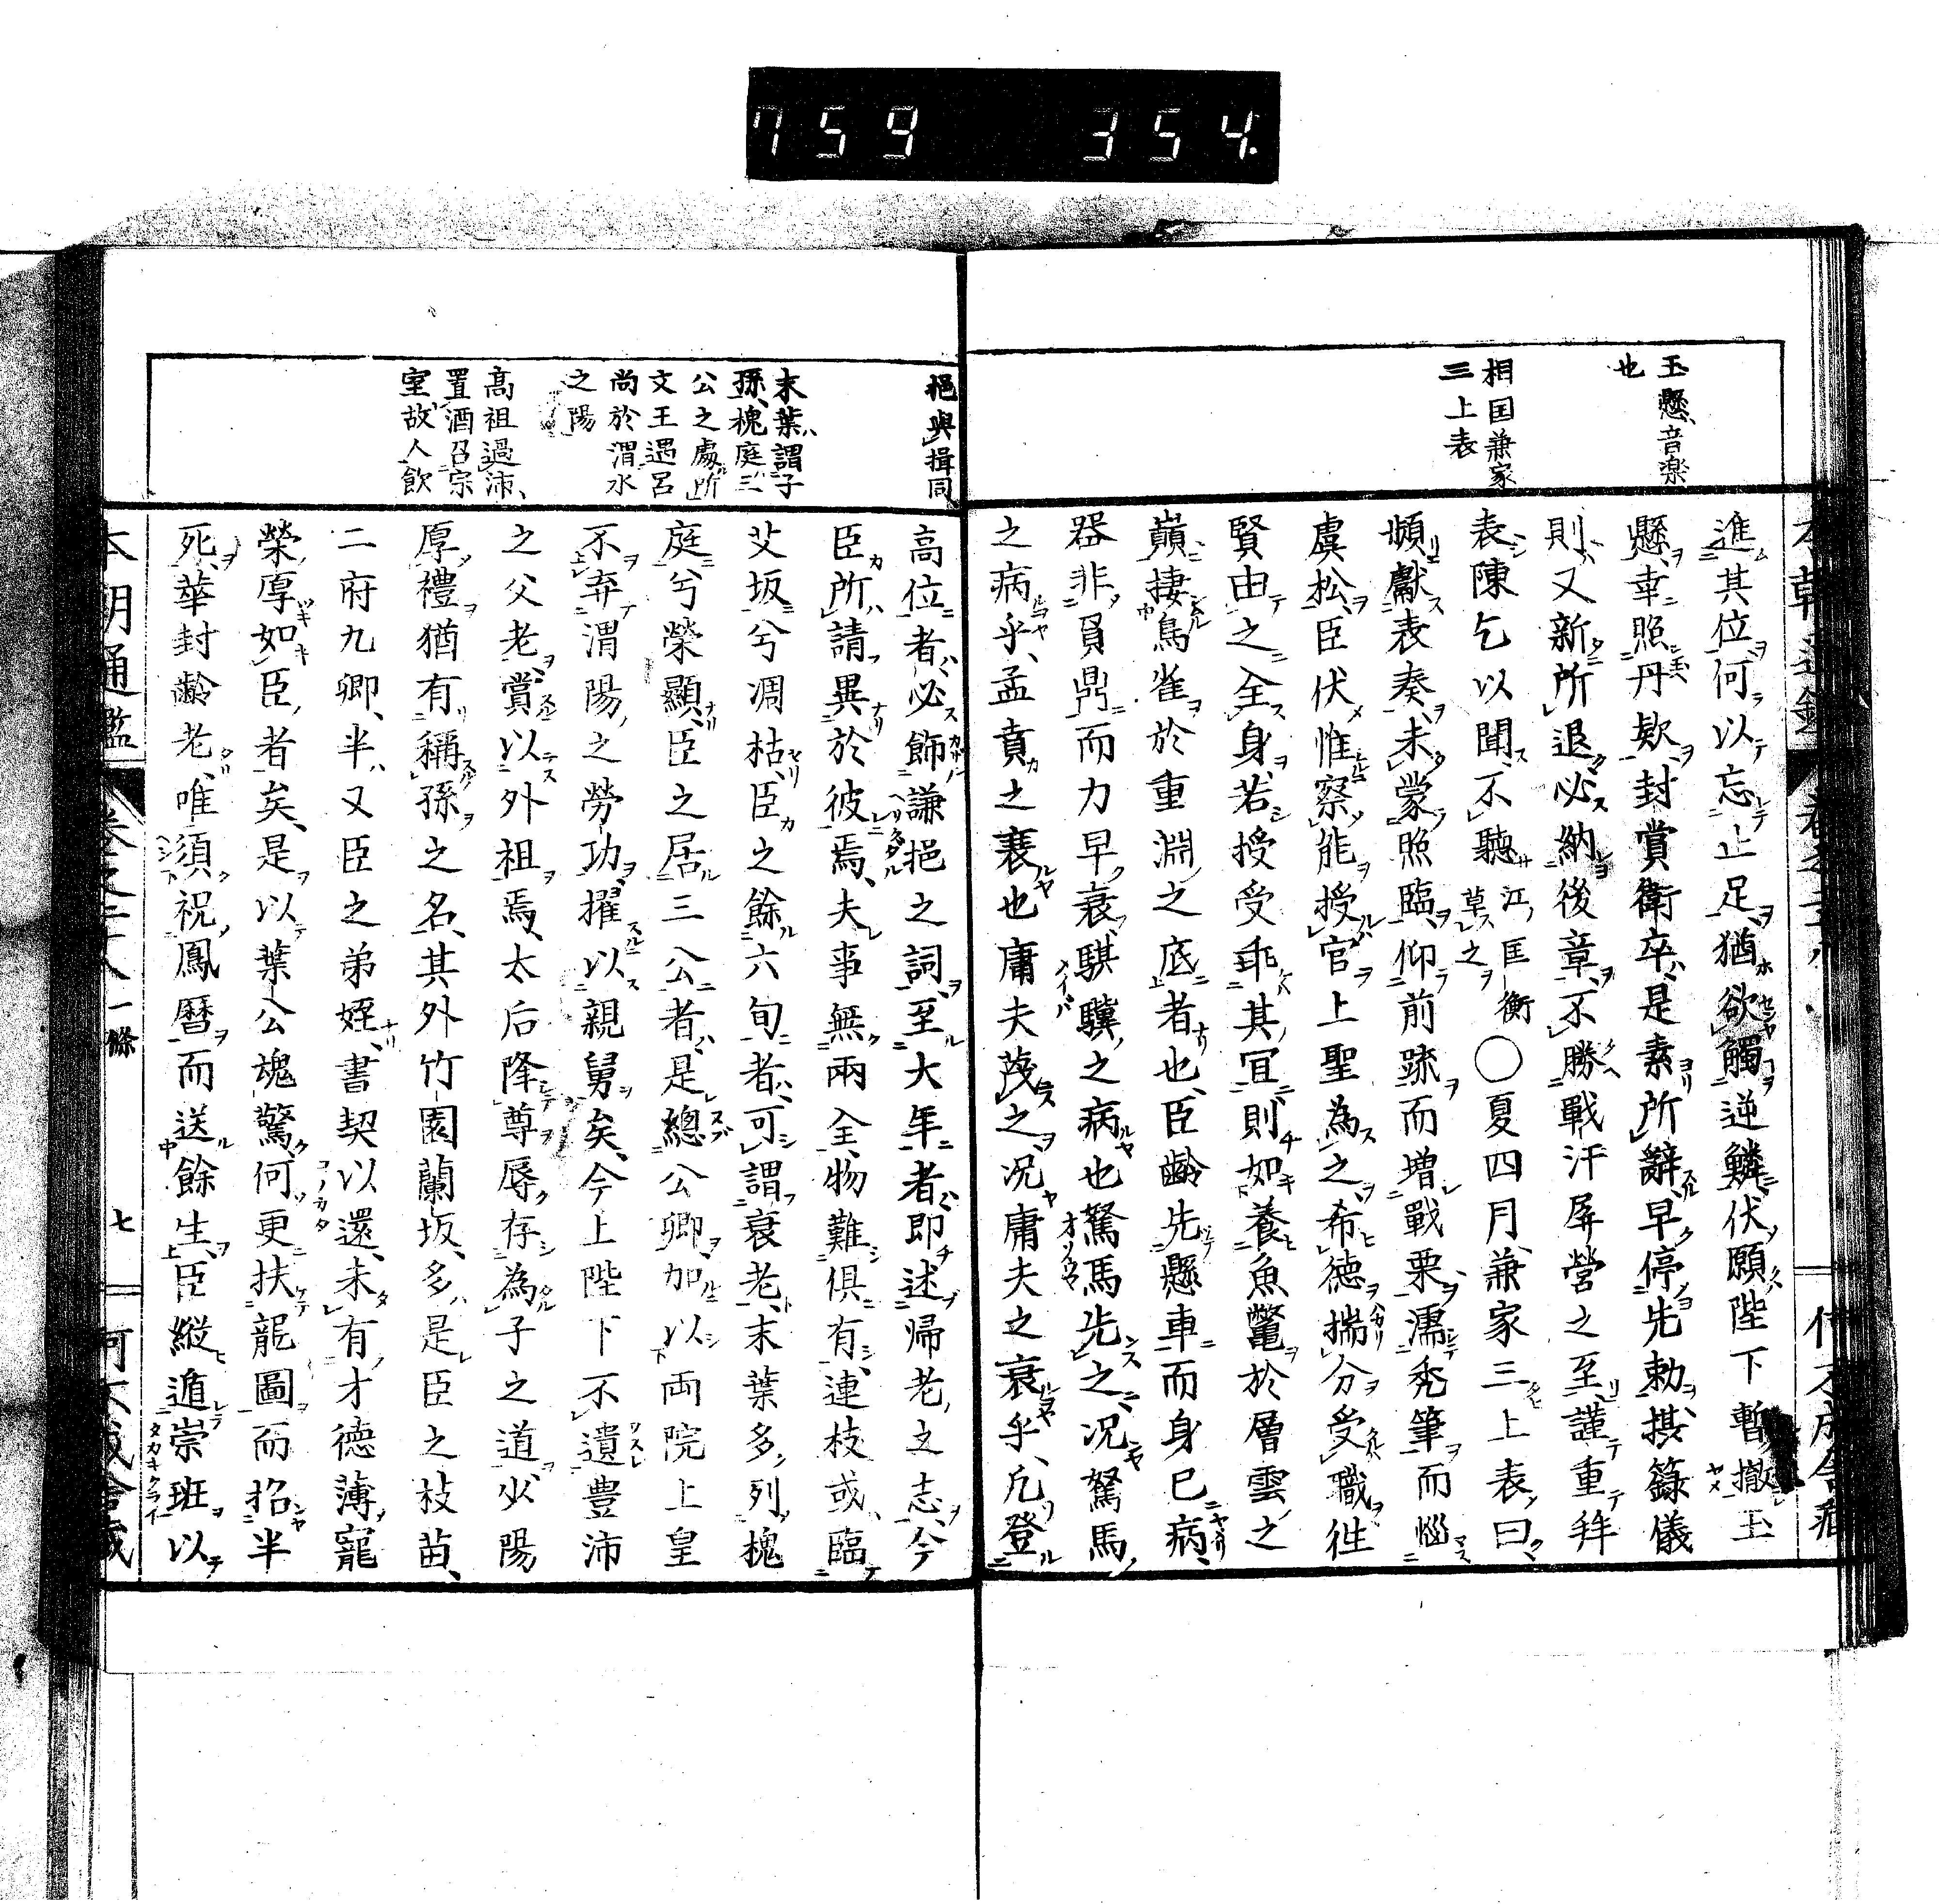 759 354
玉懸音楽
也
相国兼家
三上表
進其位何以忘止足猶欲觸逆鱗伏願陛下暫撤玉
懸幸照丹欵封賞衛卒是素所辭早停先勅撗籙儀
則又新所退必納後章不勝戰汗屏營之至謹重拜
表陳乞以聞不聽江匡衡草之〇夏四月兼家三上表曰
頻獻表奏未蒙照臨仰前跡而增戰栗濡禿筆而惱
虞松臣伏惟察能授官上聖為之希德揣分受職徃
賢由之全身若授受乖其宜則如養魚鼈於層雲之
巔捿鳥雀於重淵之底者也臣齡先懸車而身已病
器非負鼎而力早衰騏驥之病也駑馬先之況駑馬
之病乎孟賁之衰也庸夫蔑之况庸夫之衰乎凢登
挹與揖同
末葉謂子
孫槐庭三
公之處所
文王遇呂
尚於渭水
之陽
高祖過沛
置酒召宗
室故人飲
高位者必飾謙挹之詞至大年者即述帰老之志今
臣所請異於彼焉夫事無兩全物難俱有連枝或臨
艾坂兮凋枯臣之餘六旬者可謂衰老末葉多列槐
庭兮榮顯臣之居三公者是總公卿加以両院上皇
不弃渭陽之勞功擢以親舅矣今上陛下不遺豊沛
之父老賞以外祖焉太后降尊辱存為子之道少陽
厚禮猶有稱孫之名其外竹園蘭坂多是臣之枝苗
二府九卿半又臣之弟姪書契以還未有才德薄寵
榮厚如臣者矣是以葉公魂驚何更扶龍圖而招半
死華封齡老唯須祝鳳曆而送餘生臣縱遁崇班以
本朝通鑑 七